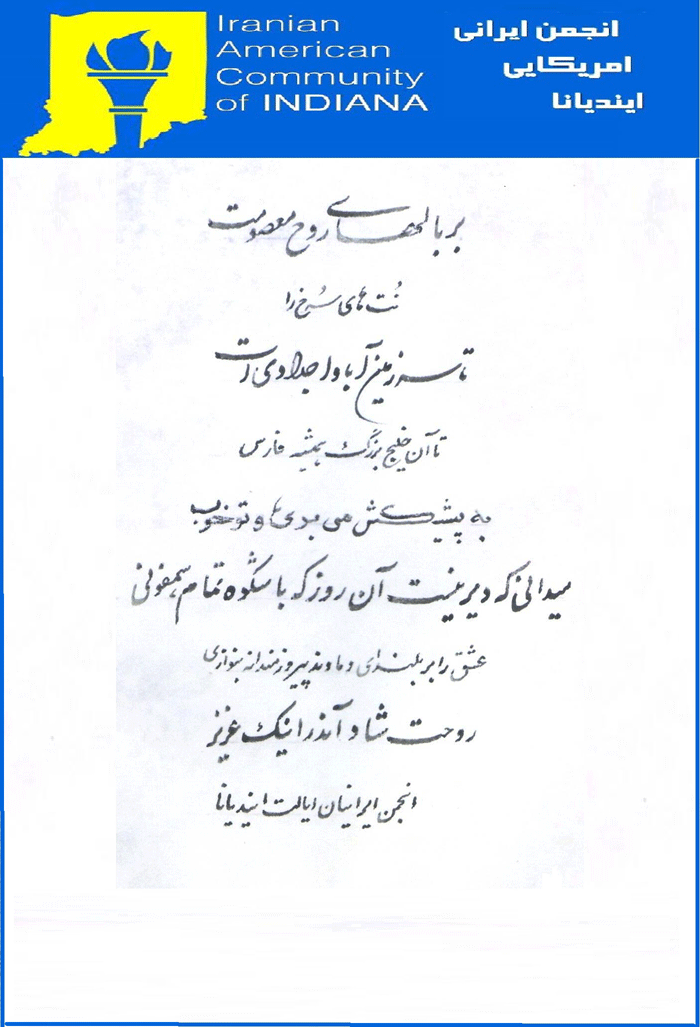 Iranian
American
Community
of INDIANA
انجمن ایرانی
امریکایی
ایندیانا
بر بالهای روح معصومت
نُت های سُرخ را
تا سرزمین آبا و اجدادی ات
تا آن خلیج بزرگ همیشه فارس
به پیشکش می بری و تو خوب
میدانی که دیر نیست آن روز که با شکوه تمام سمفونی
عشق را بر بلندای دماوند پیروزمندانه بنوازی
روحت شاد آندرانیک عزیز
انجمن ایرانیان ایالت ایندیانا